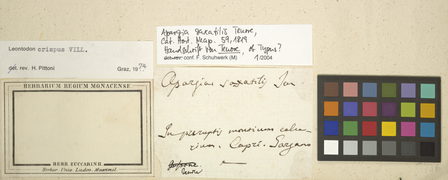 Leontodon
crispus VILL.
det. rev. H. Pittoni Graz, 1974
Apargia saxatilis Tenore,
Cat. Hort. Neap. 59, 1819
Handschrift von Tenore, of Typus?
det. rev. conf. F. Schuhwerk (M) 1/2004
HERBARIUM REGIUM MONACENSE
HERB. ZUCCARINII
Herbar. Univ. Landes. Monacensi.
Apargias saxatilis Ten
In praeruptis montium calca-
rium. Capri. Gargano
Tenore